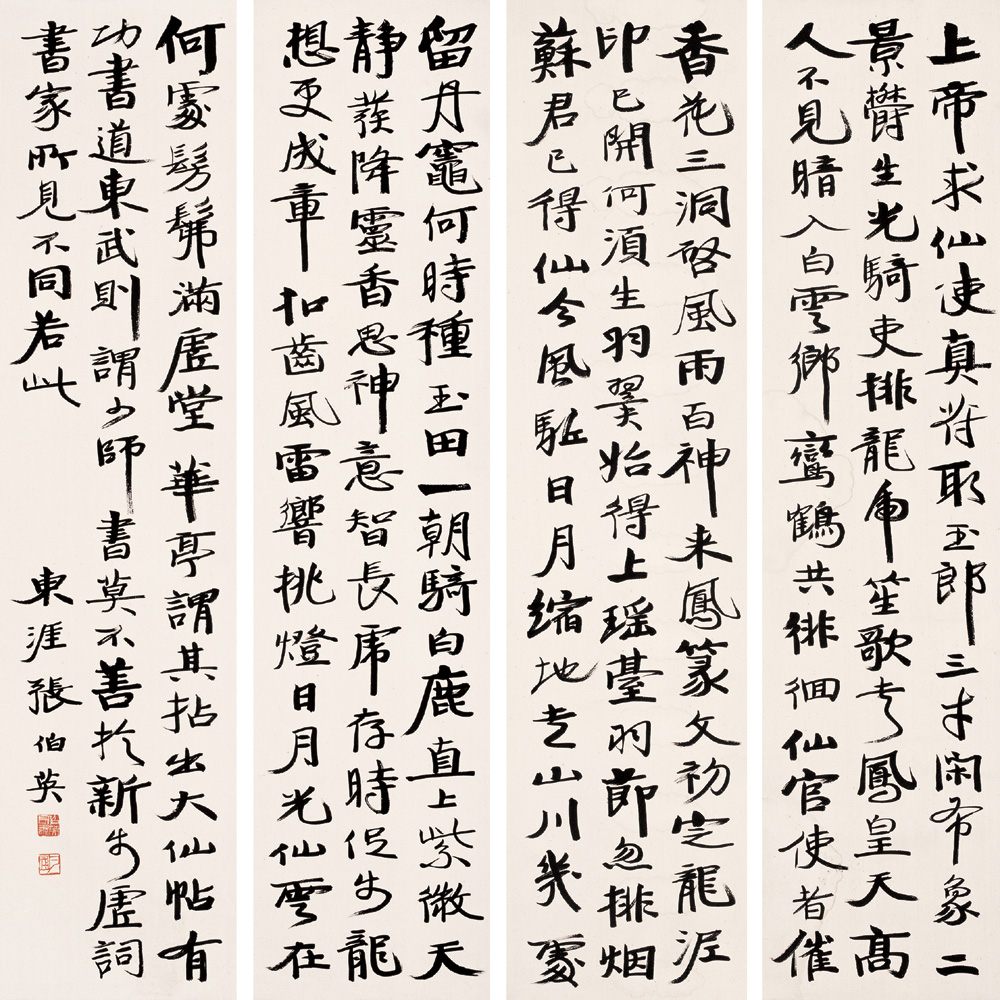 上帝求仙使真符取玉郎三才閑布象二
景欝生光騎吏排龍虎笙歌走鳳皇天高
人不見暗入白雲鄉鸞鶴共徘徊仙官使者催
香花三洞啓風雨百神来鳳篆文初定龍泥
印已開何須生羽翼始得上瑶臺羽節忽排烟
蘇君已得仙令風駈日月縮地走山川幾處
留丹竈何時種玉田一朝騎白鹿直上紫微天
靜發降靈香思神意智長虎存時促步龍
想更成章扣齒風雷響挑燈日月光仙雲在
何處髣髴滿虛堂 華亭謂其拈出大仙帖有
功書道東武則謂少師書莫不善於新步虛詞
書家所見不同若此
東涯張伯英